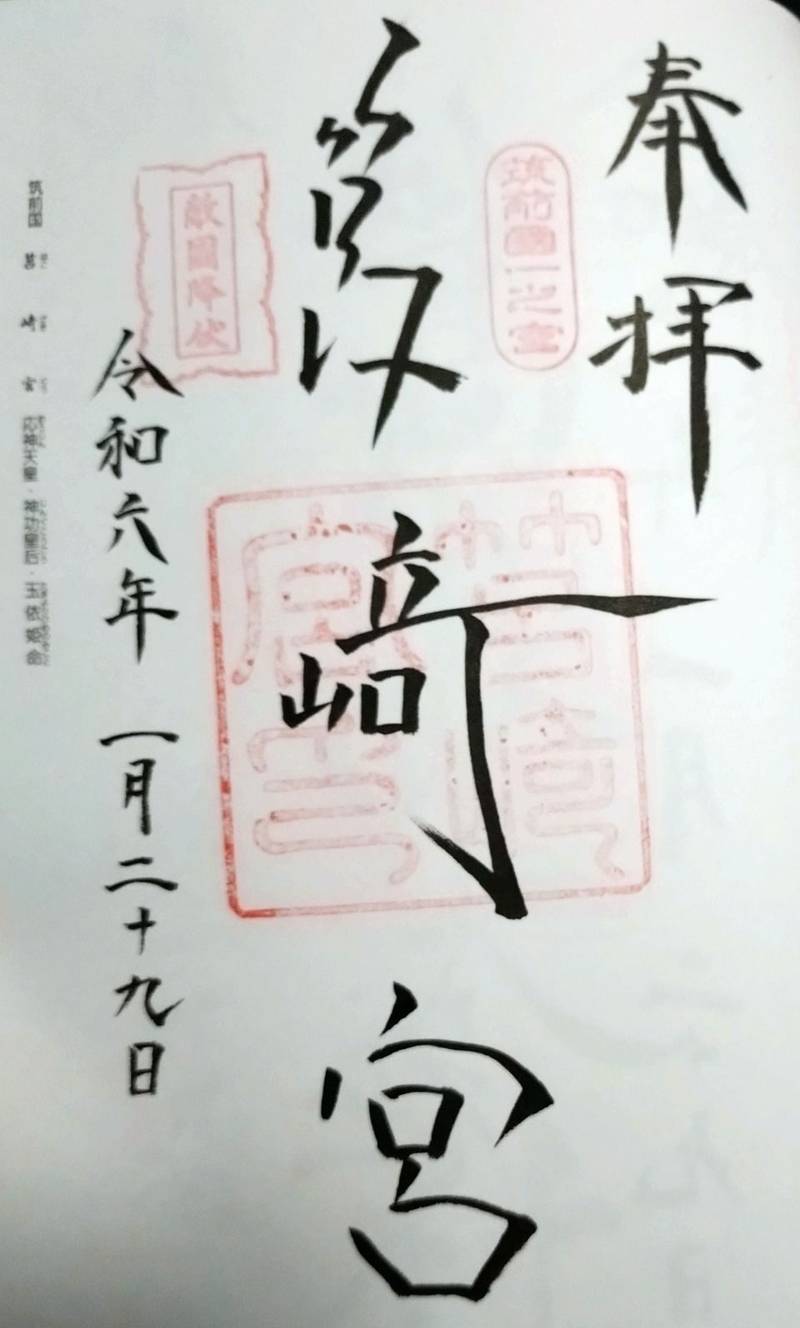 奉拝
筑前國一之宮
筥﨑宮
筥崎宮印
敵國降伏
令和六年一月二十九日
筑前国 筥崎宮 応神天皇・神功皇后・玉依姫命